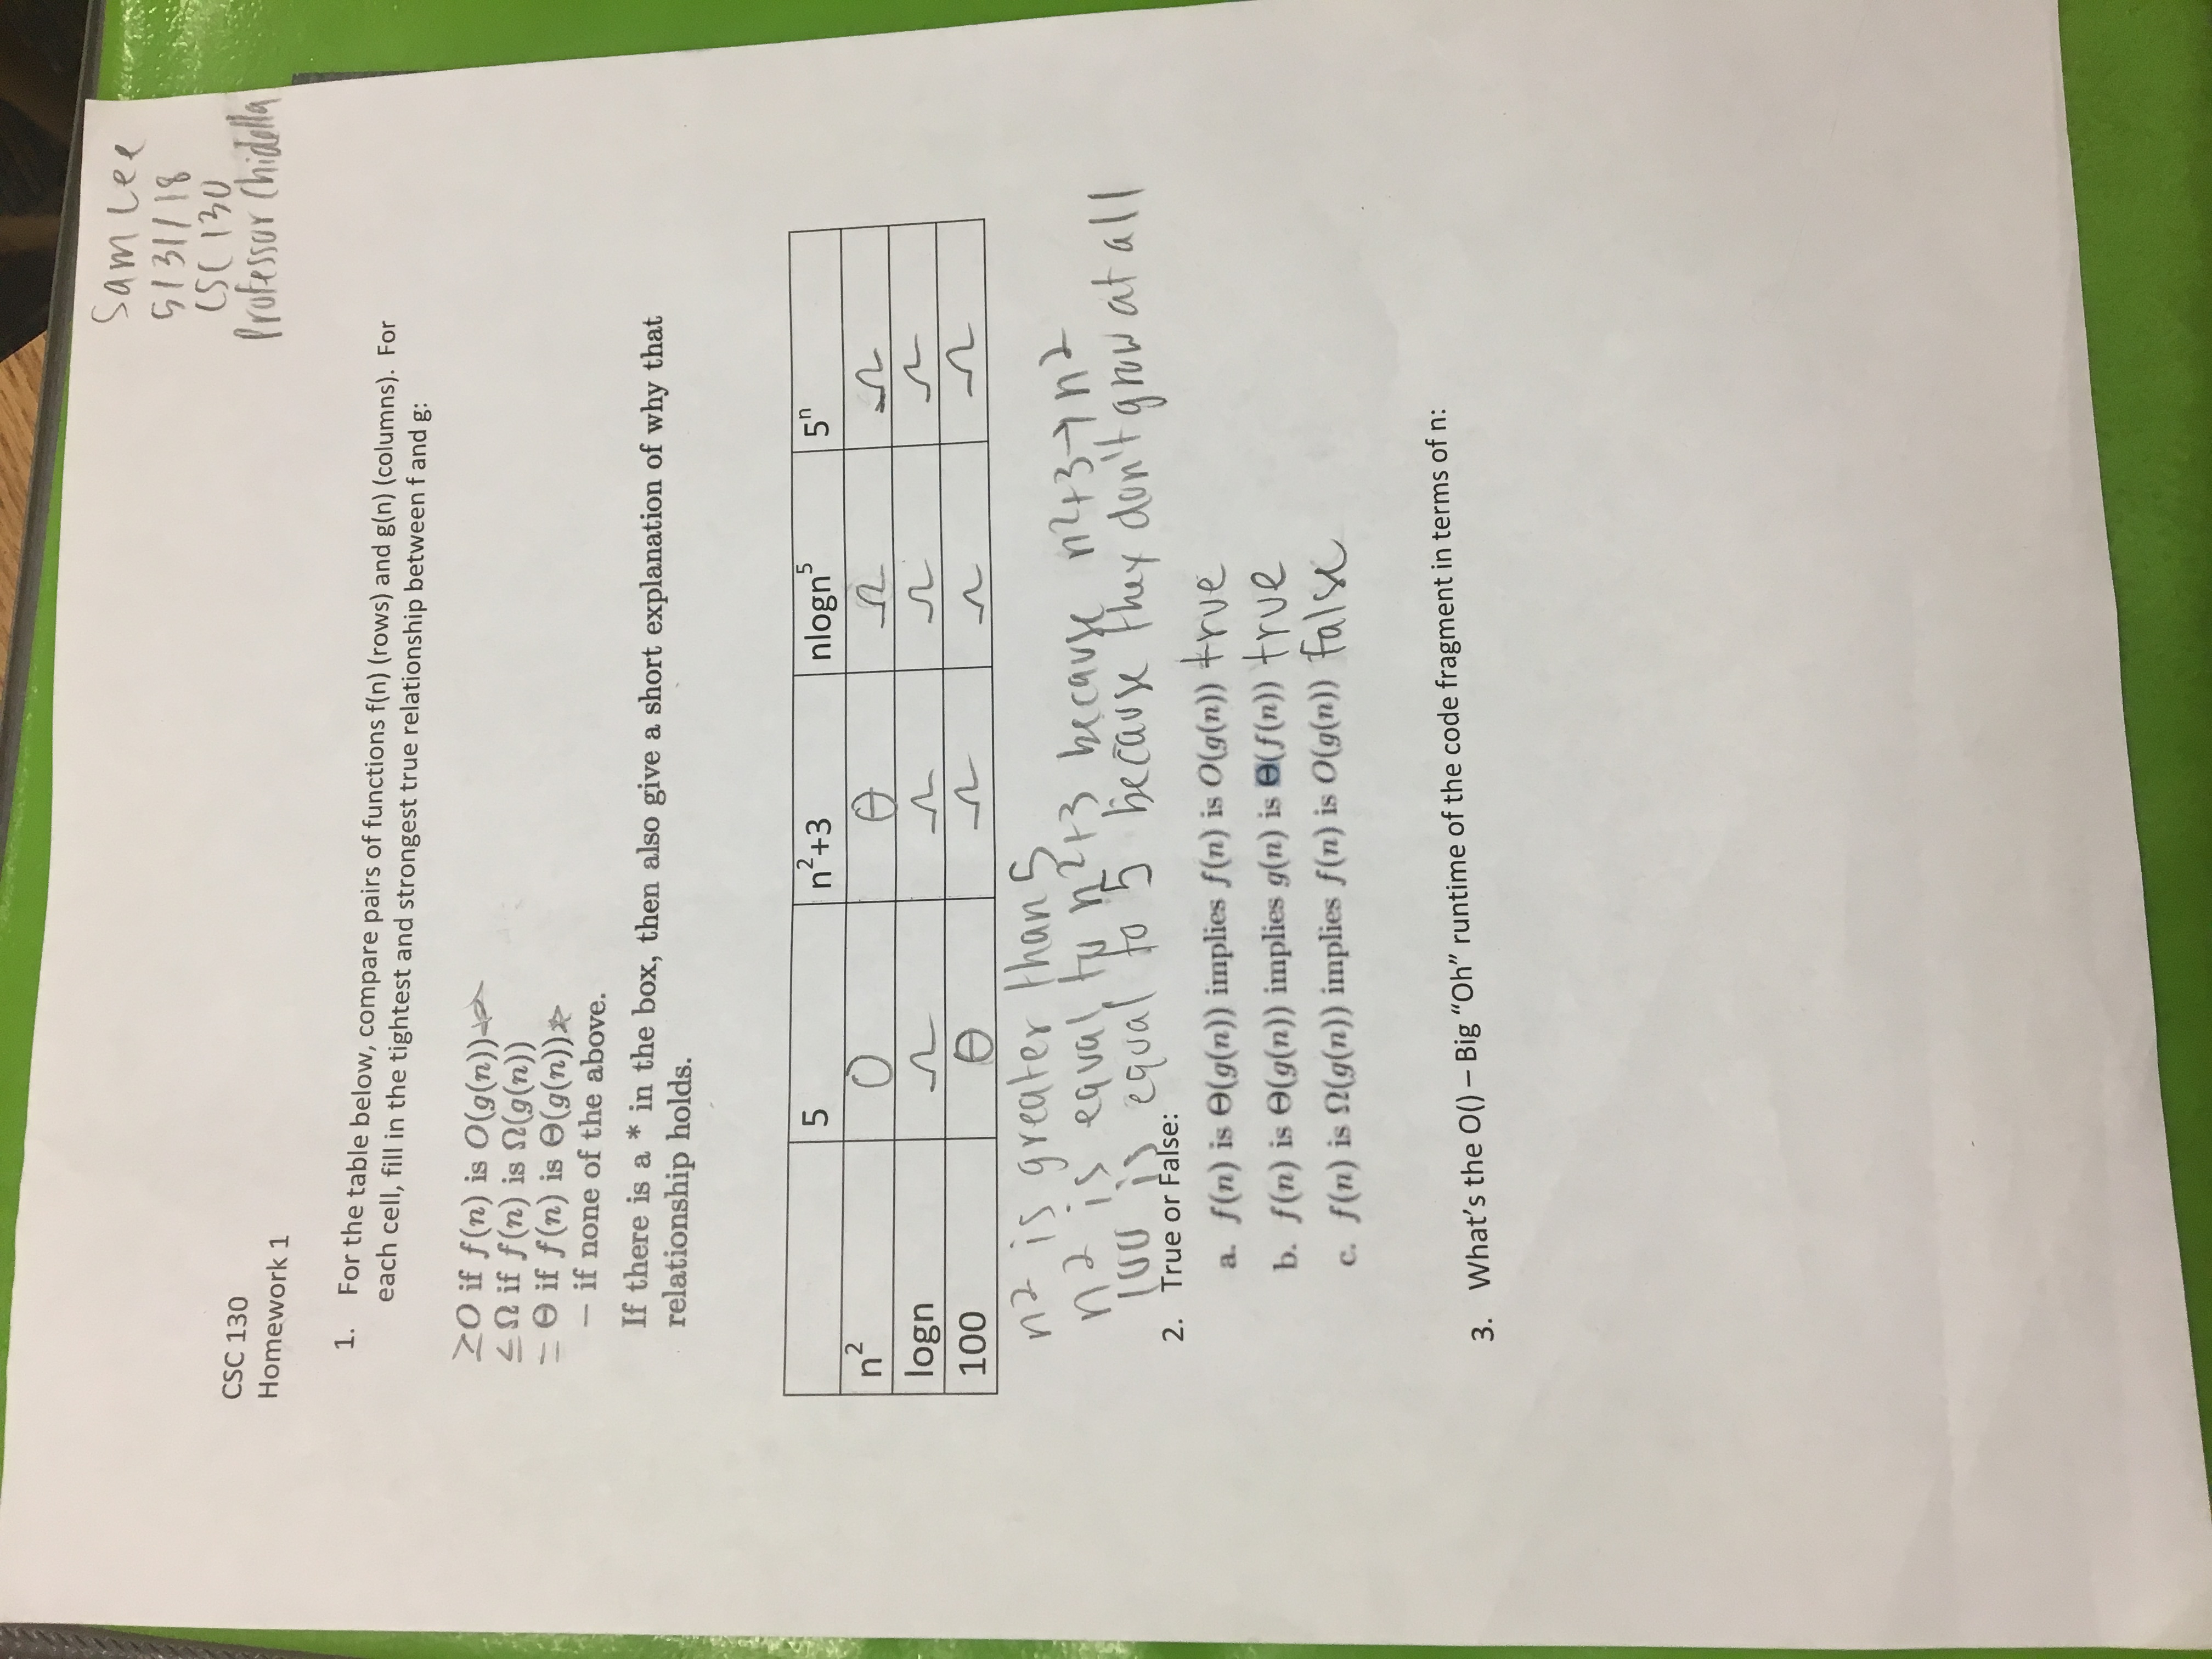 Sam Lee
5/31/18
CSC 130
Professor Chidella
CSC 130
Homework 1
1. For the table below, compare pairs of functions f(n) (rows) and g(n) (columns). For
each cell, fill in the tightest and strongest true relationship between f and g:
≥O if f(n) is O(g(n))*
≤Ω if f(n) is Ω(g(n))
=Θ if f(n) is Θ(g(n))*
– if none of the above.
If there is a * in the box, then also give a short explanation of why that
relationship holds.
5 n²+3 nlogn⁵ 5ⁿ
n² O Θ Ω Ω
logn Ω Ω Ω Ω
100 Θ Ω Ω Ω
n2 is greater than 5
n2 is equal to n2+3 because n2+3→n2
100 is equal to 5 because they don't grow at all
2. True or False:
a. f(n) is Θ(g(n)) implies f(n) is O(g(n)) true
b. f(n) is Θ(g(n)) implies g(n) is Θ(f(n)) true
c. f(n) is Ω(g(n)) implies f(n) is O(g(n)) False
3. What's the O() – Big “Oh” runtime of the code fragment in terms of n: